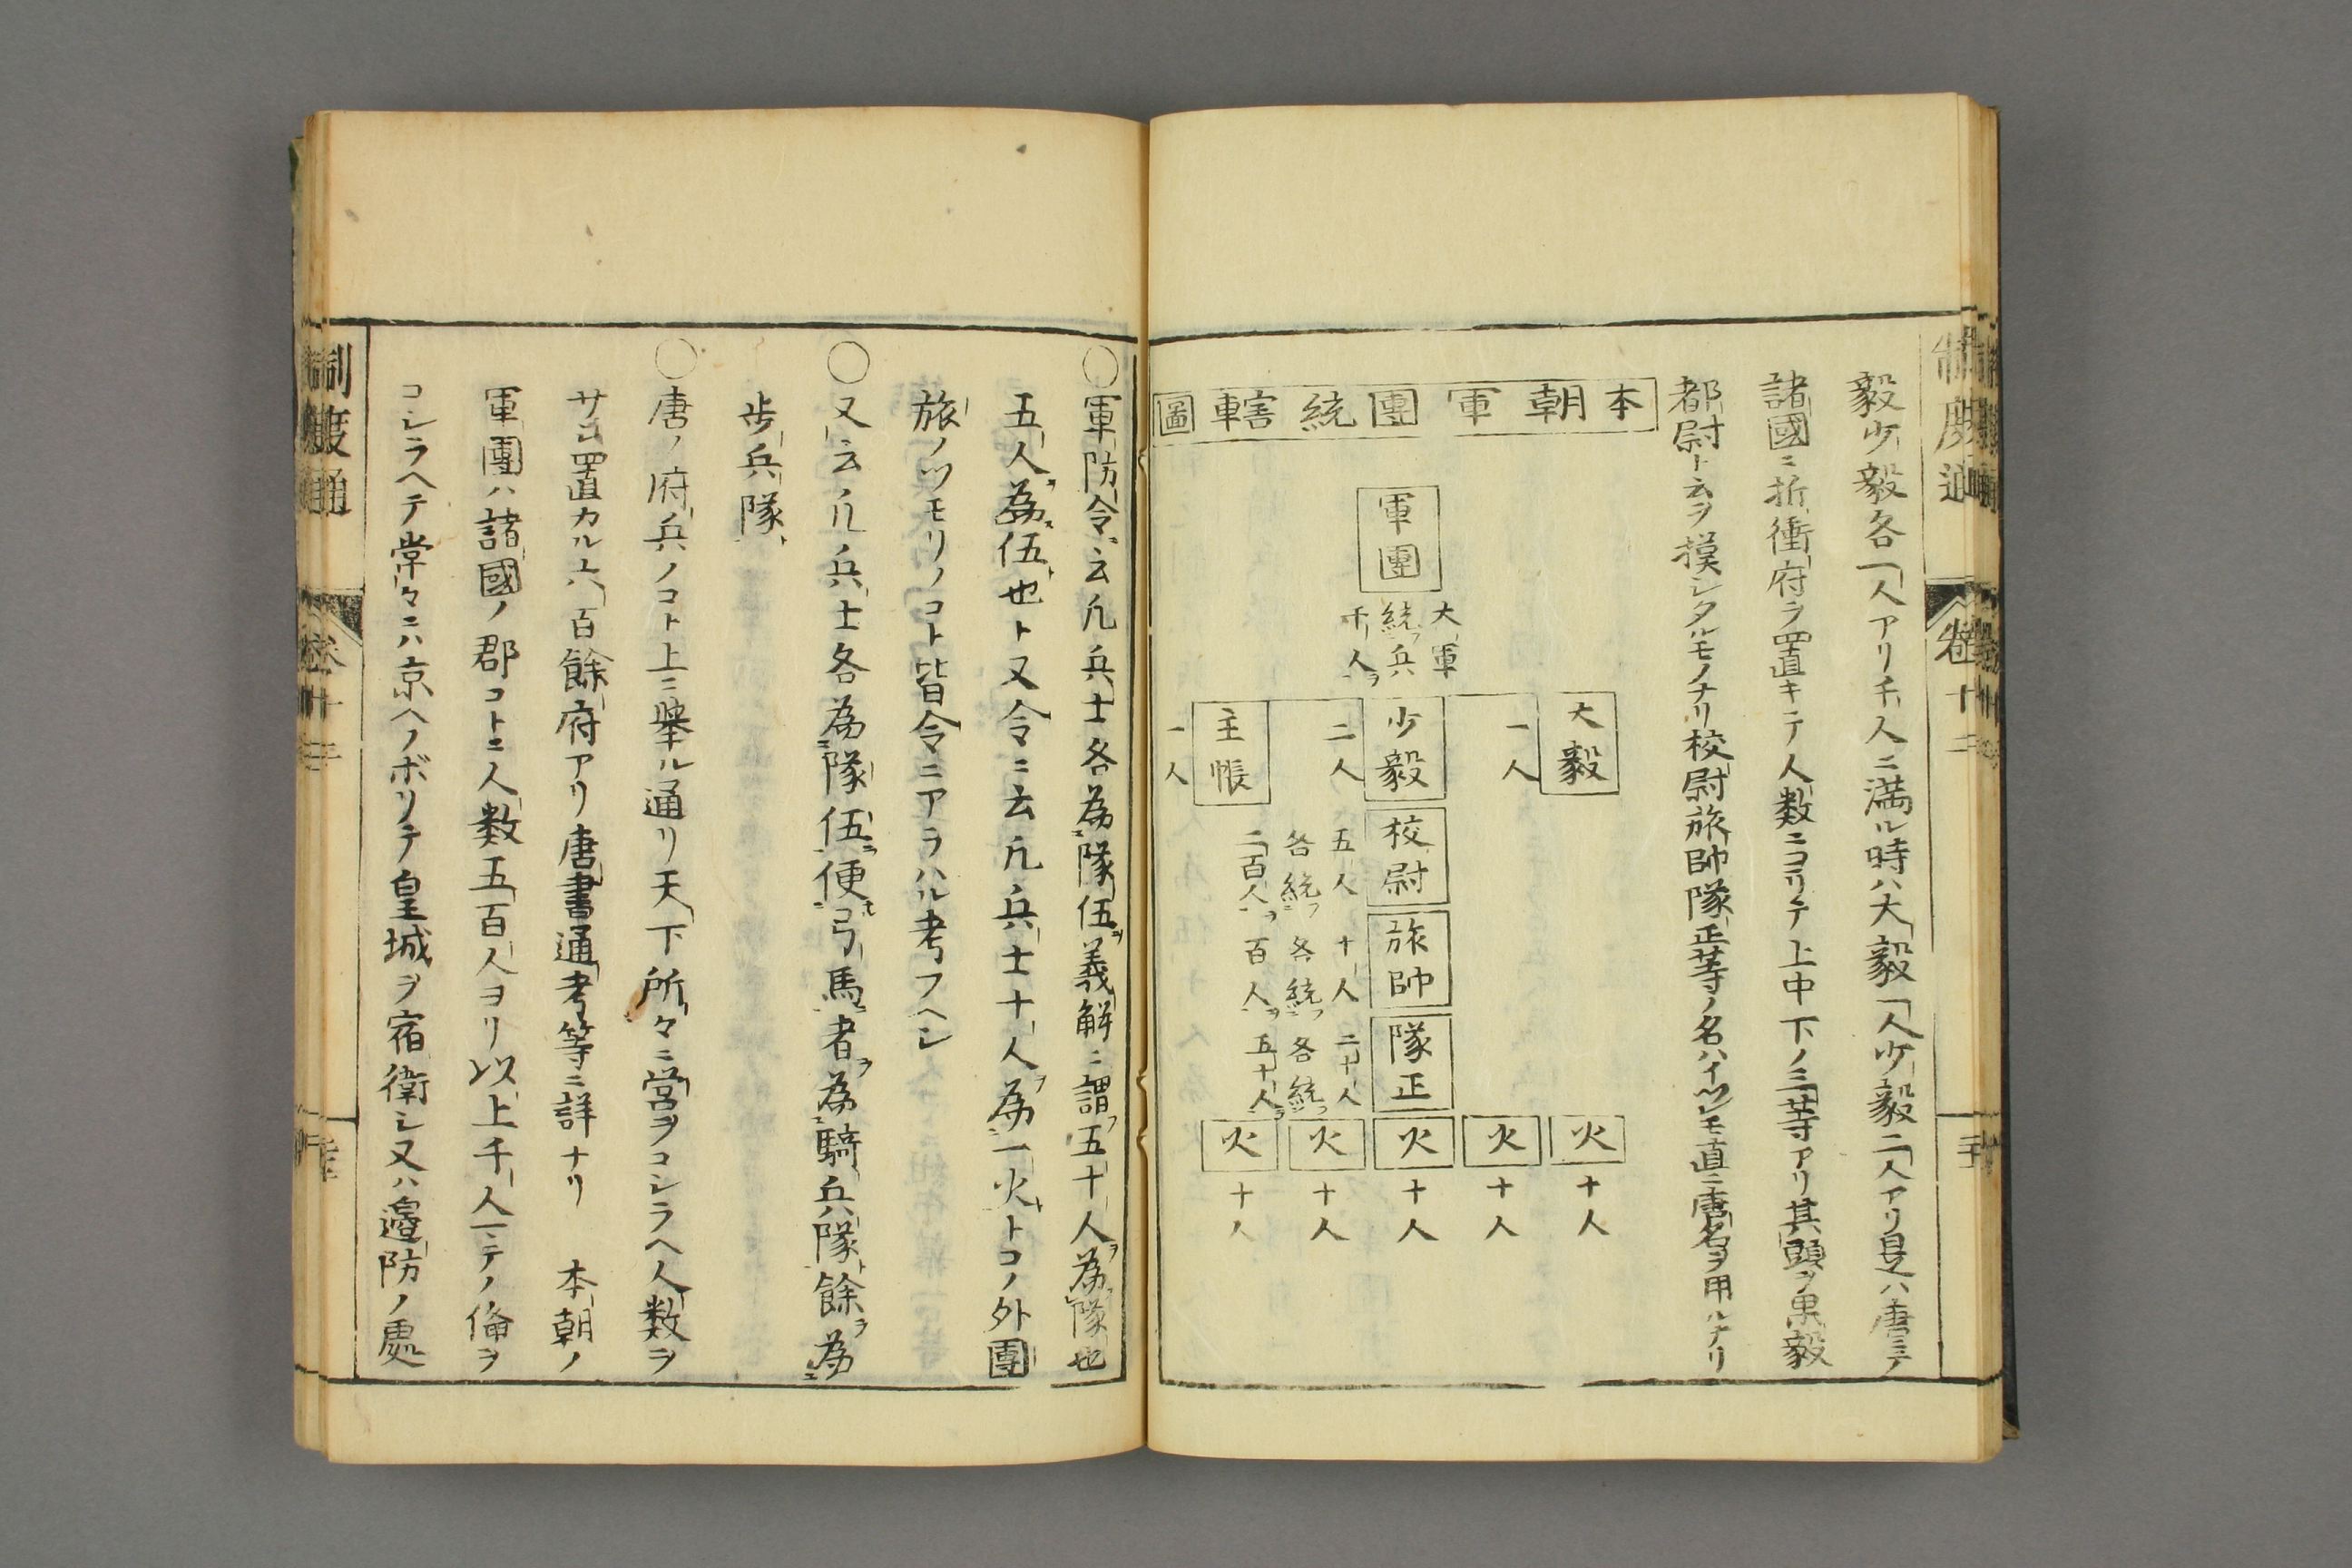 毅少毅各一人アリ千人ニ満ル時ハ大毅一人少毅二人アリ是ハ唐ニテ
諸國ニ折衝府ヲ置キテ人数ニヨリテ上中下ノ三等アリ其頭ヲ果毅
都尉ト云ヲ摸シタルモノナリ校尉旅帥隊正等ノ名ハイツレモ直ニ唐名ヲ用ルナリ
本朝軍團統轄圖
軍團
大軍
統フ兵
千人ヲ
大毅
一人
少毅
二人
主帳
一人
校尉
五人
各統フ
二百人ヲ
旅帥
十人
各統フ
百人ヲ
隊正
二十人
各統フ
五十人ヲ
火
十人
火
十人
火
十人
火
十人
火
十人
制度通
卷十二
○軍防令云凡兵士各為隊伍義解ニ謂五十人為隊也
五人為伍也ト又令ニ云凡兵士十人為一火トコノ外團
旅ノツモリノコト皆令ニアラハル考フヘシ
○又云凡兵士各為隊伍便弓馬者為騎兵隊餘為
歩兵隊
○唐ノ府兵ノコト上ニ舉ル通リ天下所々ニ営ヲコシラヘ人数ヲ
サシ置カル六百餘府アリ唐書通考等ニ詳ナリ 本朝ノ
軍團ハ諸國ノ郡コトニ人数五百人ヨリ以上千人マテノ備ヲ
コシラヘテ常々ニハ京ヘノボリテ皇城ヲ宿衛シ又ハ邉防ノ處
制度通